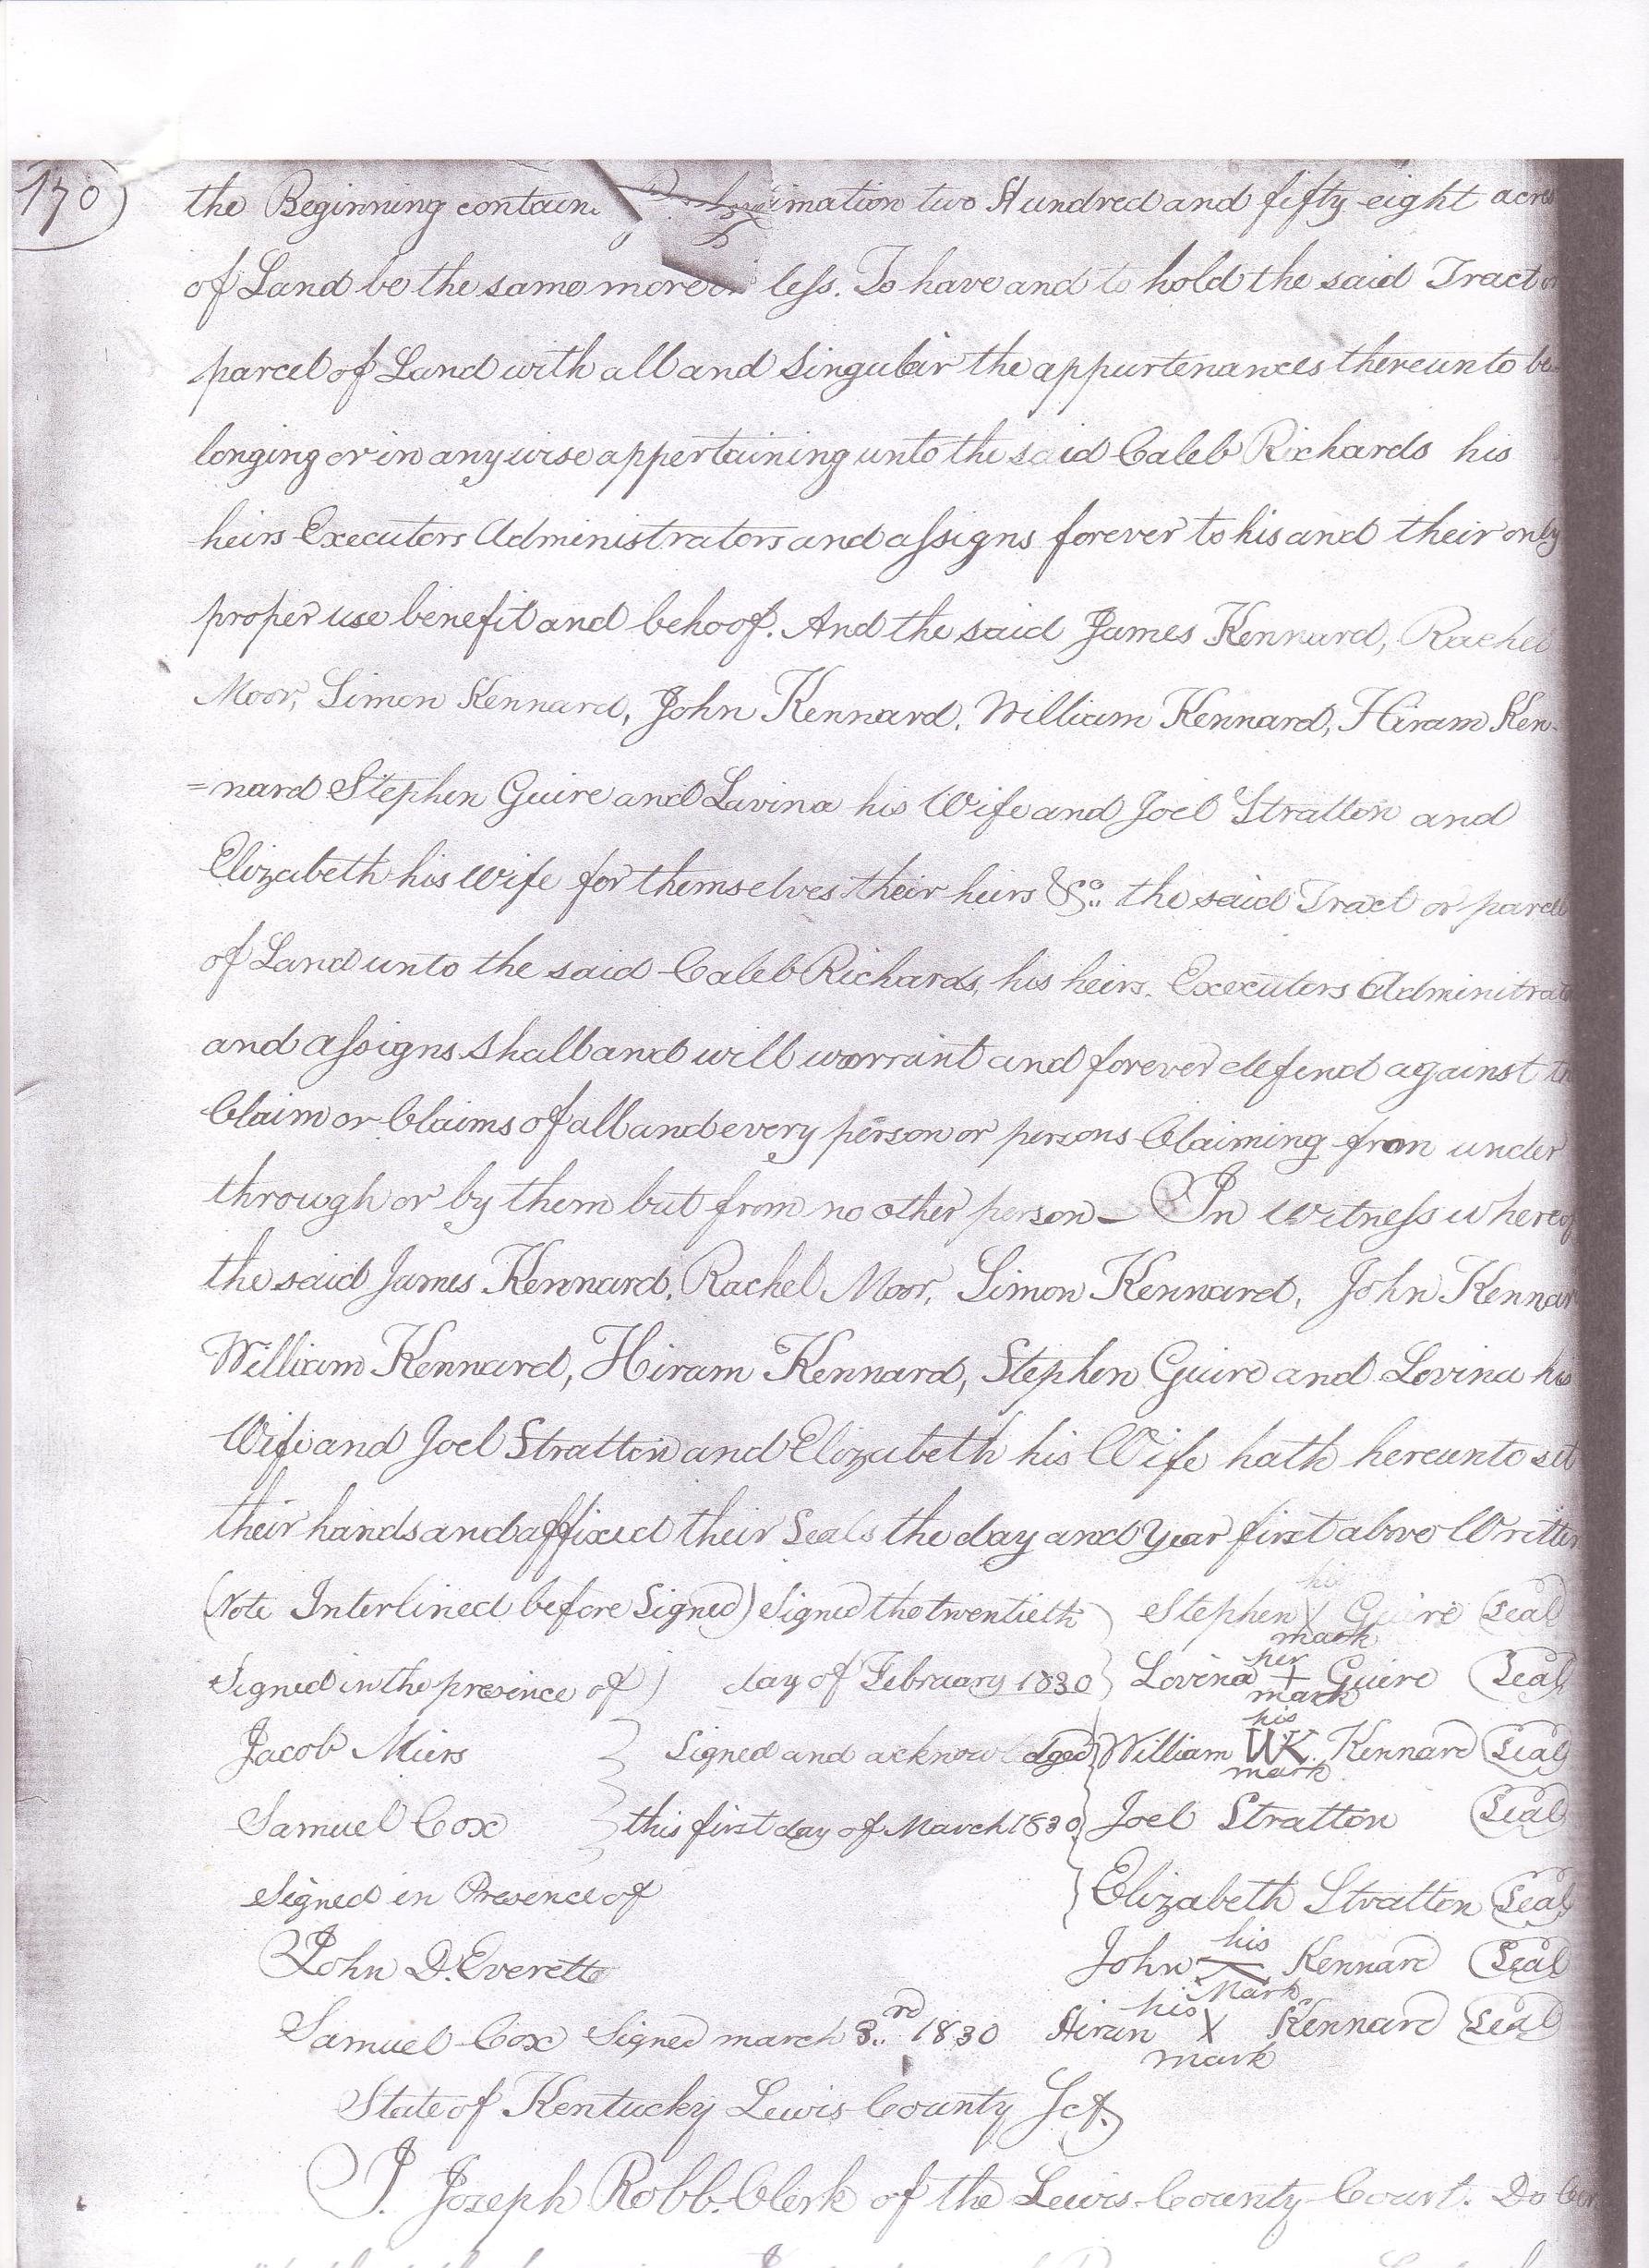 170
the Beginning contain imation two Hundred and fifty eight acres
of Land be the same more or less. To have and to hold the said Tract or
parcel of Land with all and Singular the appurtenances thereunto be
longing or in any wise appertaining unto the said Caleb Richards his
heirs Executors Administrators and assigns forever to his and their only
proper use benefit and behoof. And the said James Kennard, Rachel
Moor, Simon Kennard, John Kennard, William Kennard, Hiram Ken-
=nard Stephen Guire and Lavina his Wife and Joel Stratton and
Elizabeth his Wife for themselves their heirs &c. the said Tract or parcel
of Land unto the said Caleb Richards, his heirs. Executors Adminitrat
and assigns shall and will warrant and forever defend against the
Claim or Claims of all and every person or persons Claiming from under
through or by them but from no other person — In Witness whereof
the said James Kennard, Rachel Moor, Simon Kennard, John Kennar
William Kennard, Hiram Kennard, Stephen Guire and Lovina his
Wife and Joel Stratton and Elizabeth his Wife hath hereunto set
their hands and affixed their Seals the day and Year first above Written
(Note Interlined before Signed) Signed the twentieth Stephen his X mark Guire Seal
Signed in the presence of day of February 1830 Lovina her + mark Guire Seal
Jacob Miers Signed and acknowledged William his WK mark Kennard Seal
Samuel Cox this first day of March 1830 Joel Stratton Seal
Signed in Presence of Elizabeth Stratton Seal
John D. Everette John his Mark Kennard Seal
Samuel Cox Signed march 3rd 1830 Hiram his X mark Kennard Seal
State of Kentucky Lewis County Sct.
I. Joseph Robb. Clerk of the Lewis County Court. Do Cer